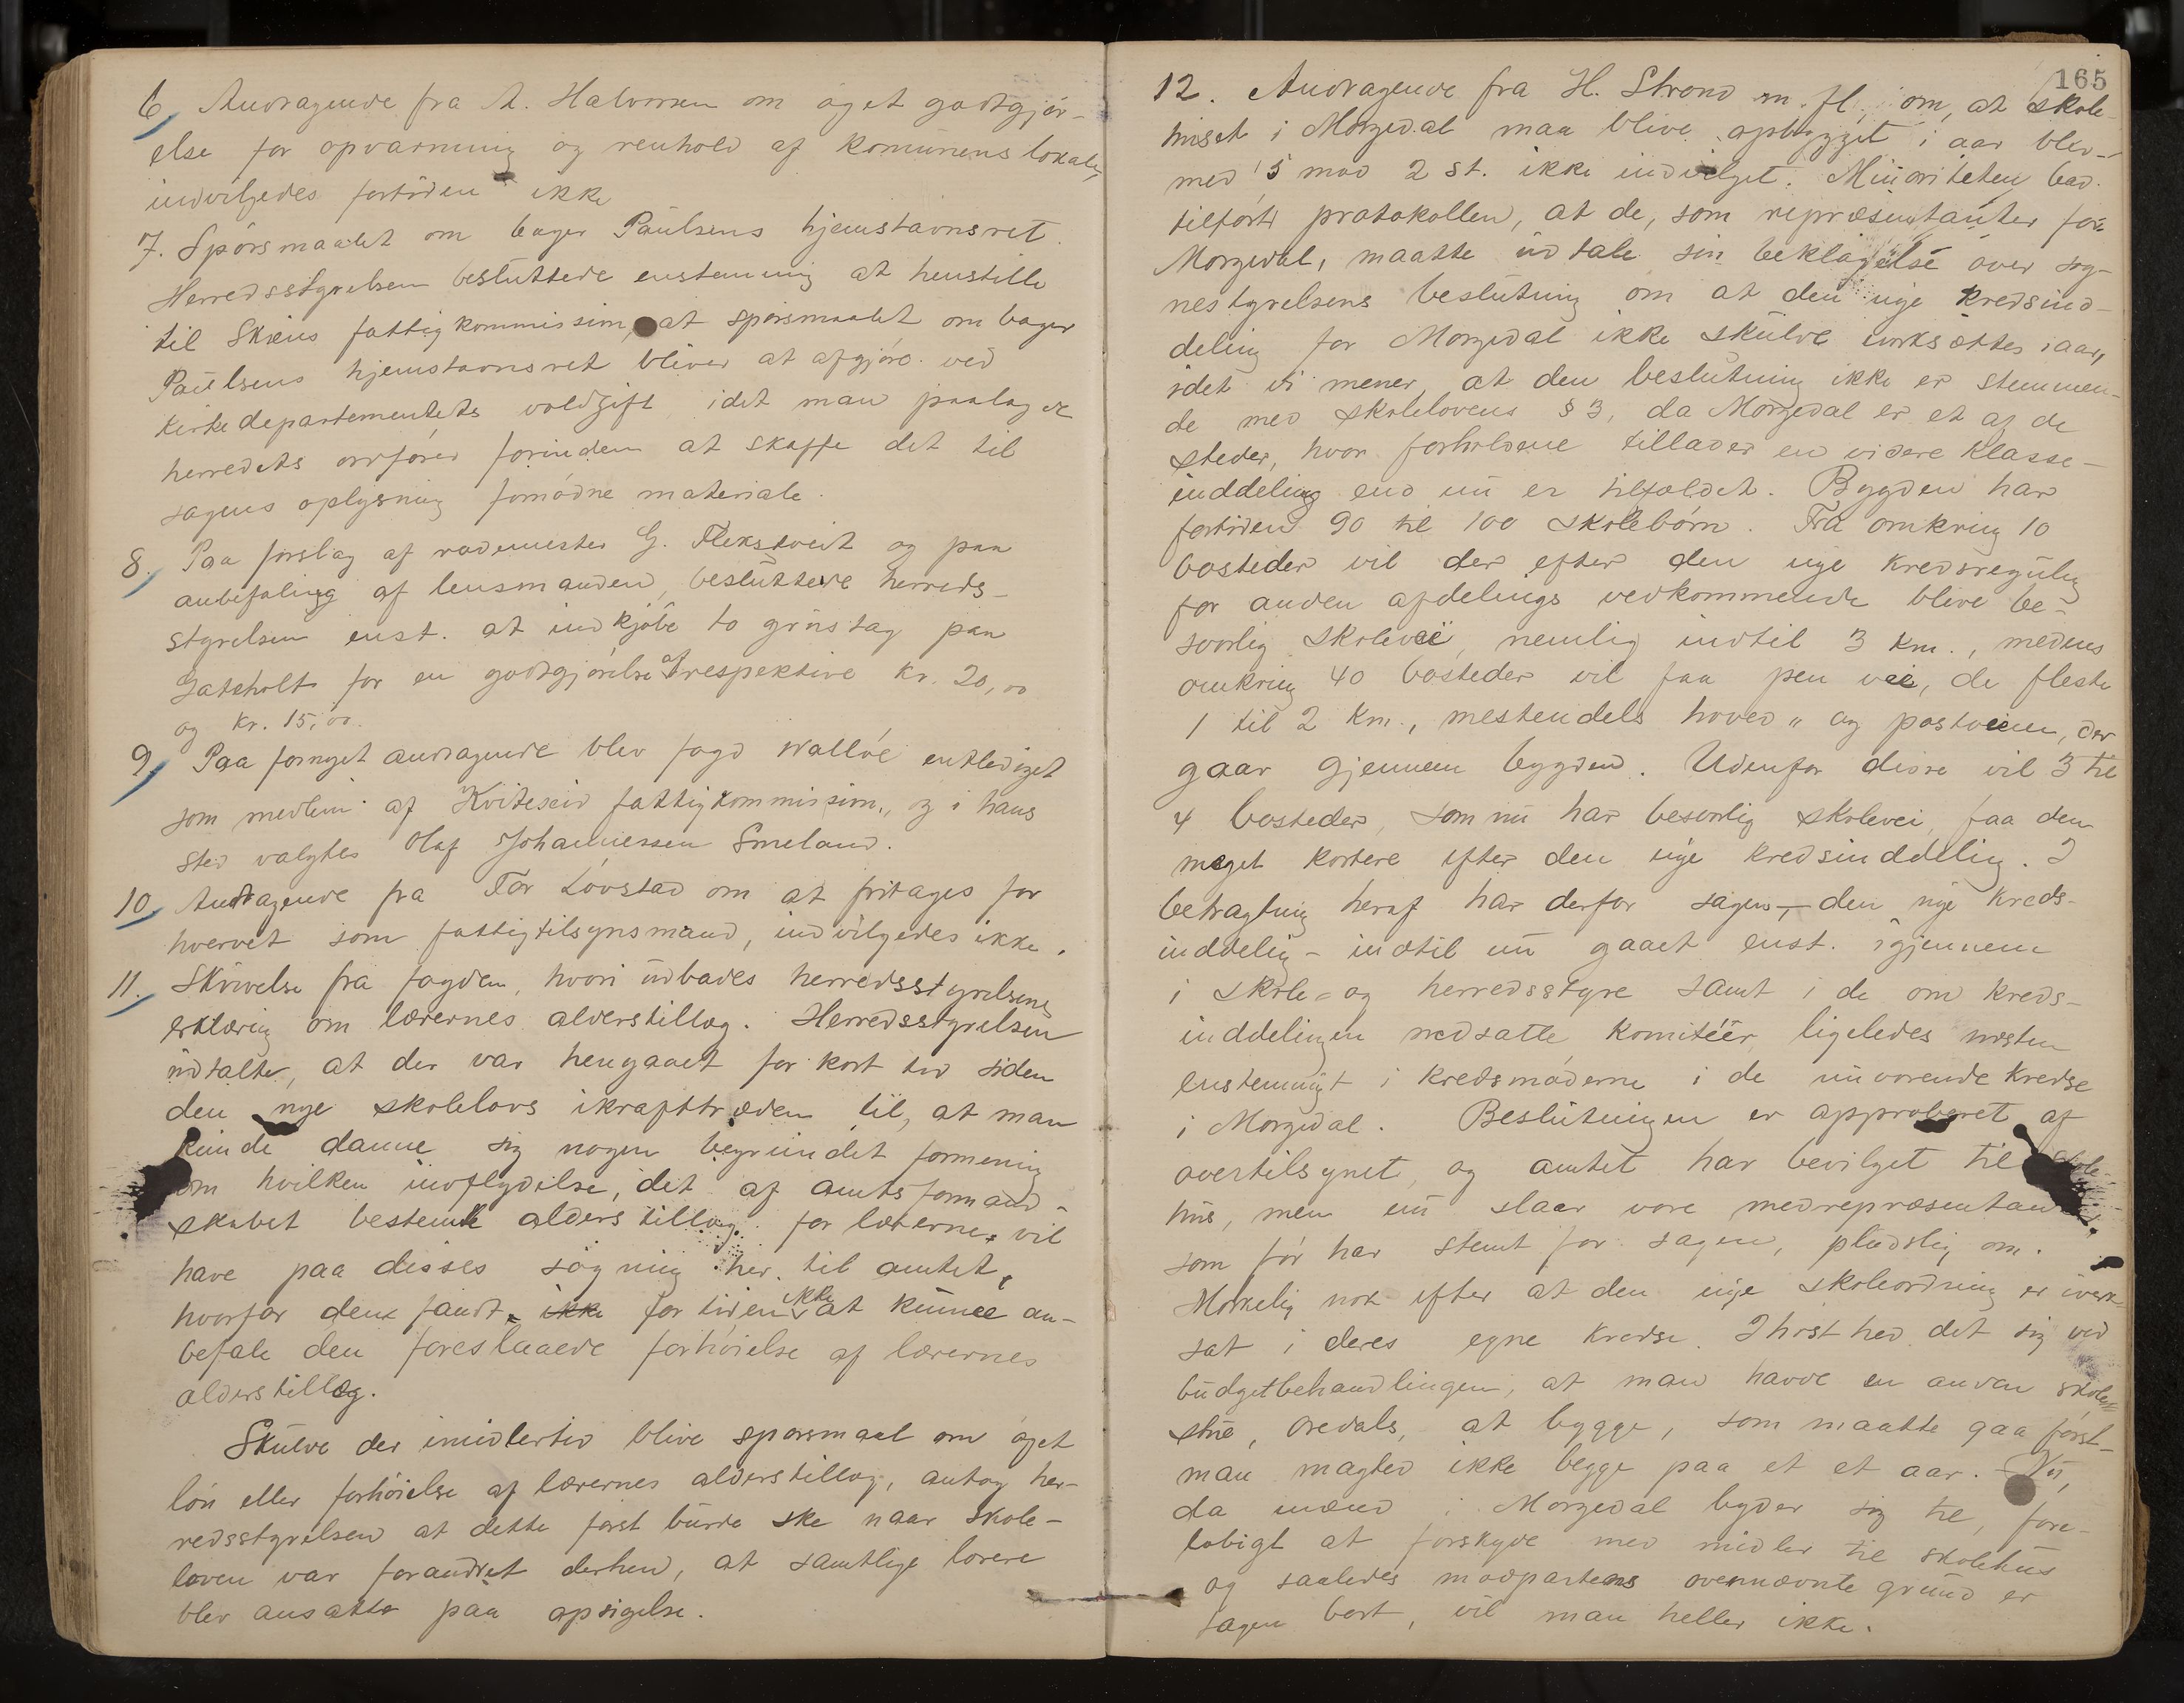 6, Andragende fra A. Halvorsen om øget godtgjør-
else for opvarming og renhold af komunens lokaler,
indvilgedes fortiden ikke
7. Spørsmaalet om bager Paulsens hjemstavnsret.
Herredsstyrelsen besluttede enstemmig at henstille
til Skiens fattigkommission, at spørsmaalet om bager
Paulsens hjemstavnsret bliver at afgjøre ved
kirkedepartementets voldgift idet man paalagde
herredets ordfører forinden at skaffe det til
sagens oplysning fornødne materiale.
8. Paa forslag af rodemester G. Flekstveit og paa
anbefaling af lensmanden, besluttede herreds-
styrelsen enst. at indkjøbe to grustag paa
Gateholt for en godtgjørelse af respektive kr. 20,00
og kr. 15,00.
9, Paa fornyet andragende blev fogd Walløe entlediget
som medlem af Kviteseid fattigkommission, og i hans
sted valgtes Olaf Johannessen Smeland.
10, Andragende fra Tor Løvstad om at fritages for
hvervet som fattigtilsynsmand, indvilgedes ikke.
11. Skrivelse fra fogden, hvori udbades herredsstyrelsens
erklæring om lærernes alderstillæg. Herredsstyrelsen
udtalte, at der var hengaaet for kort tid siden
den nye skolelovs ikrafttræden til, at man
kunde danne sig nogen begrundet formening
om hvilken indflydelse, det af amtsformand-
skabet bestemte alderstillæg for lærerne, vil
have paa disses søgning her til amtet,
hvorfor den fandt ikke for tiden ikke at kunne an-
befale den foreslaaede forhøielse af lærernes
alderstillæg.
Skulde der imidlertid blive spørsmaal om øget
løn eller forhøielse af lærernes alderstillæg, antog her-
redsstyrelsen at dette først burde ske naar skole-
loven var forandret derhen, at samtlige lærere
blev ansatte paa opsigelse.
165
12. Andragende fra H. Strond m. fl. om, at skole-
huset i Morgedal maa blive opbygget i aar blev
med 15 mod 2 st. ikke indvilget. Minoriteten bad
tilført protokollen, at de, som repræsentanter for
Morgedal, maatte udtale sin beklagelse over sog-
nestyrelsens beslutning om at den nye kredsind-
deling for Morgedal ikke skulde iverksættes iaar,
idet vi mener, at den beslutning ikke er stemmen-
de med skolelovens § 3, da Morgedal er et af de
steder, hvor forholdene tillader en videre klasse-
inddeling end nu er tilfældet. Bygden har
fortiden 90 til 100 skolebørn. Fra omkring 10
bosteder vil der efter den nye kredsregulng
for anden afdelings vedkommende blive be-
sværlig skolevei, nemlig indtil 3 km., medens
omkring 40 bosteder vil faa pen vei, de fleste
1 til 2 km., mestendels hoved " og postveien, der
gaar gjennem bygden. Udenfor disse vil 3 til
4 bosteder, som nu har besværlig skolevei, faa den
meget kortere efter den nye kredsinddeling. I
betragtning heraf har derfor sagen – den nye kreds-
inddeling – indtil nu gaaet enst. igjennem
i skole- og herredsstyre samt i de om kreds-
inddelingen nedsatte komitéer, ligeledes næsten
enstemmigt i kredsmøderne i de nuværende kredse
i Morgedal. Beslutningen er approberet af
overtilsynet, og amtet har bevilget til skole-
hus, men nu slaar vore medrepræsentanter,
som før har stemt for sagen, pludslig om.
Mærkelig nok efter at den nye skoleordning er iverk-
sat i deres egne kredse. Ihøst hed det sig ved
budgetbehandlingen, at man havde en anden skole-
stue, Ordals, at bygge, som maatte gaa først –
man magted ikke begge paa et et aar. – Nu,
da mænd i Morgedal byder sig til, fore-
løbigt at forskyde med midler til skolehus
og saaledes modpartens ovennævnte grund er
tagen bort, vil man heller ikke.